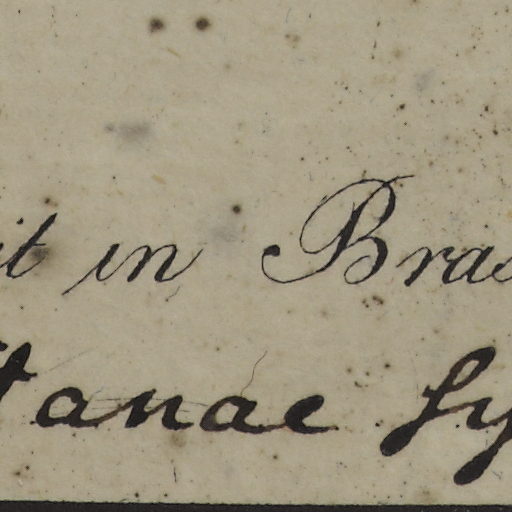 it in Bras
tanae Sy